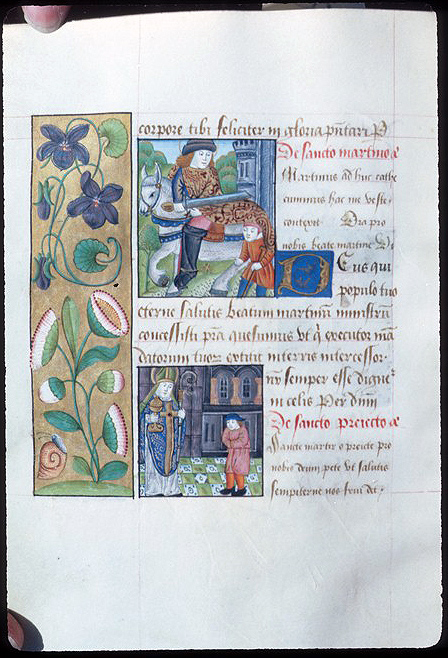 corpore tibi feliciter in gloria pñtari P
De sancto martino a
Martinus ad huc cathe
cuminus hac me veste
contexit Ora pro
nobis beate martine
Deus qui
populo tuo
eterne salutis beatum martinũ ministrũ
concessisti pr̃a quesumus vt q̃ executor mã
datorum tuor extitit in terris intercessor
nr̃ semper esse digne
in celis Per dñm
De sancto preiecto a
Sancte martir o preicte pro
nobis deum pete vt salutis
sempiterne nos